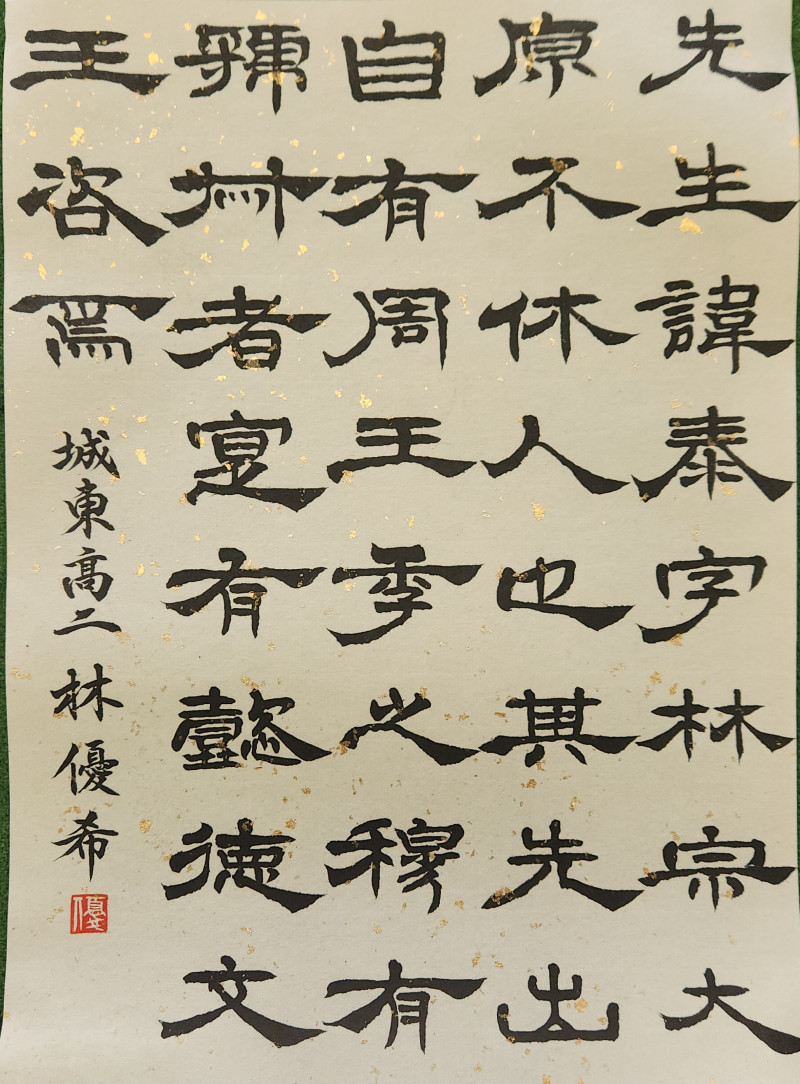 先生諱泰字林宗大
原不休人也其先出
自有周王季之穆有
虢叔者寔有懿德文
王咨焉
城東高二 林優希
優